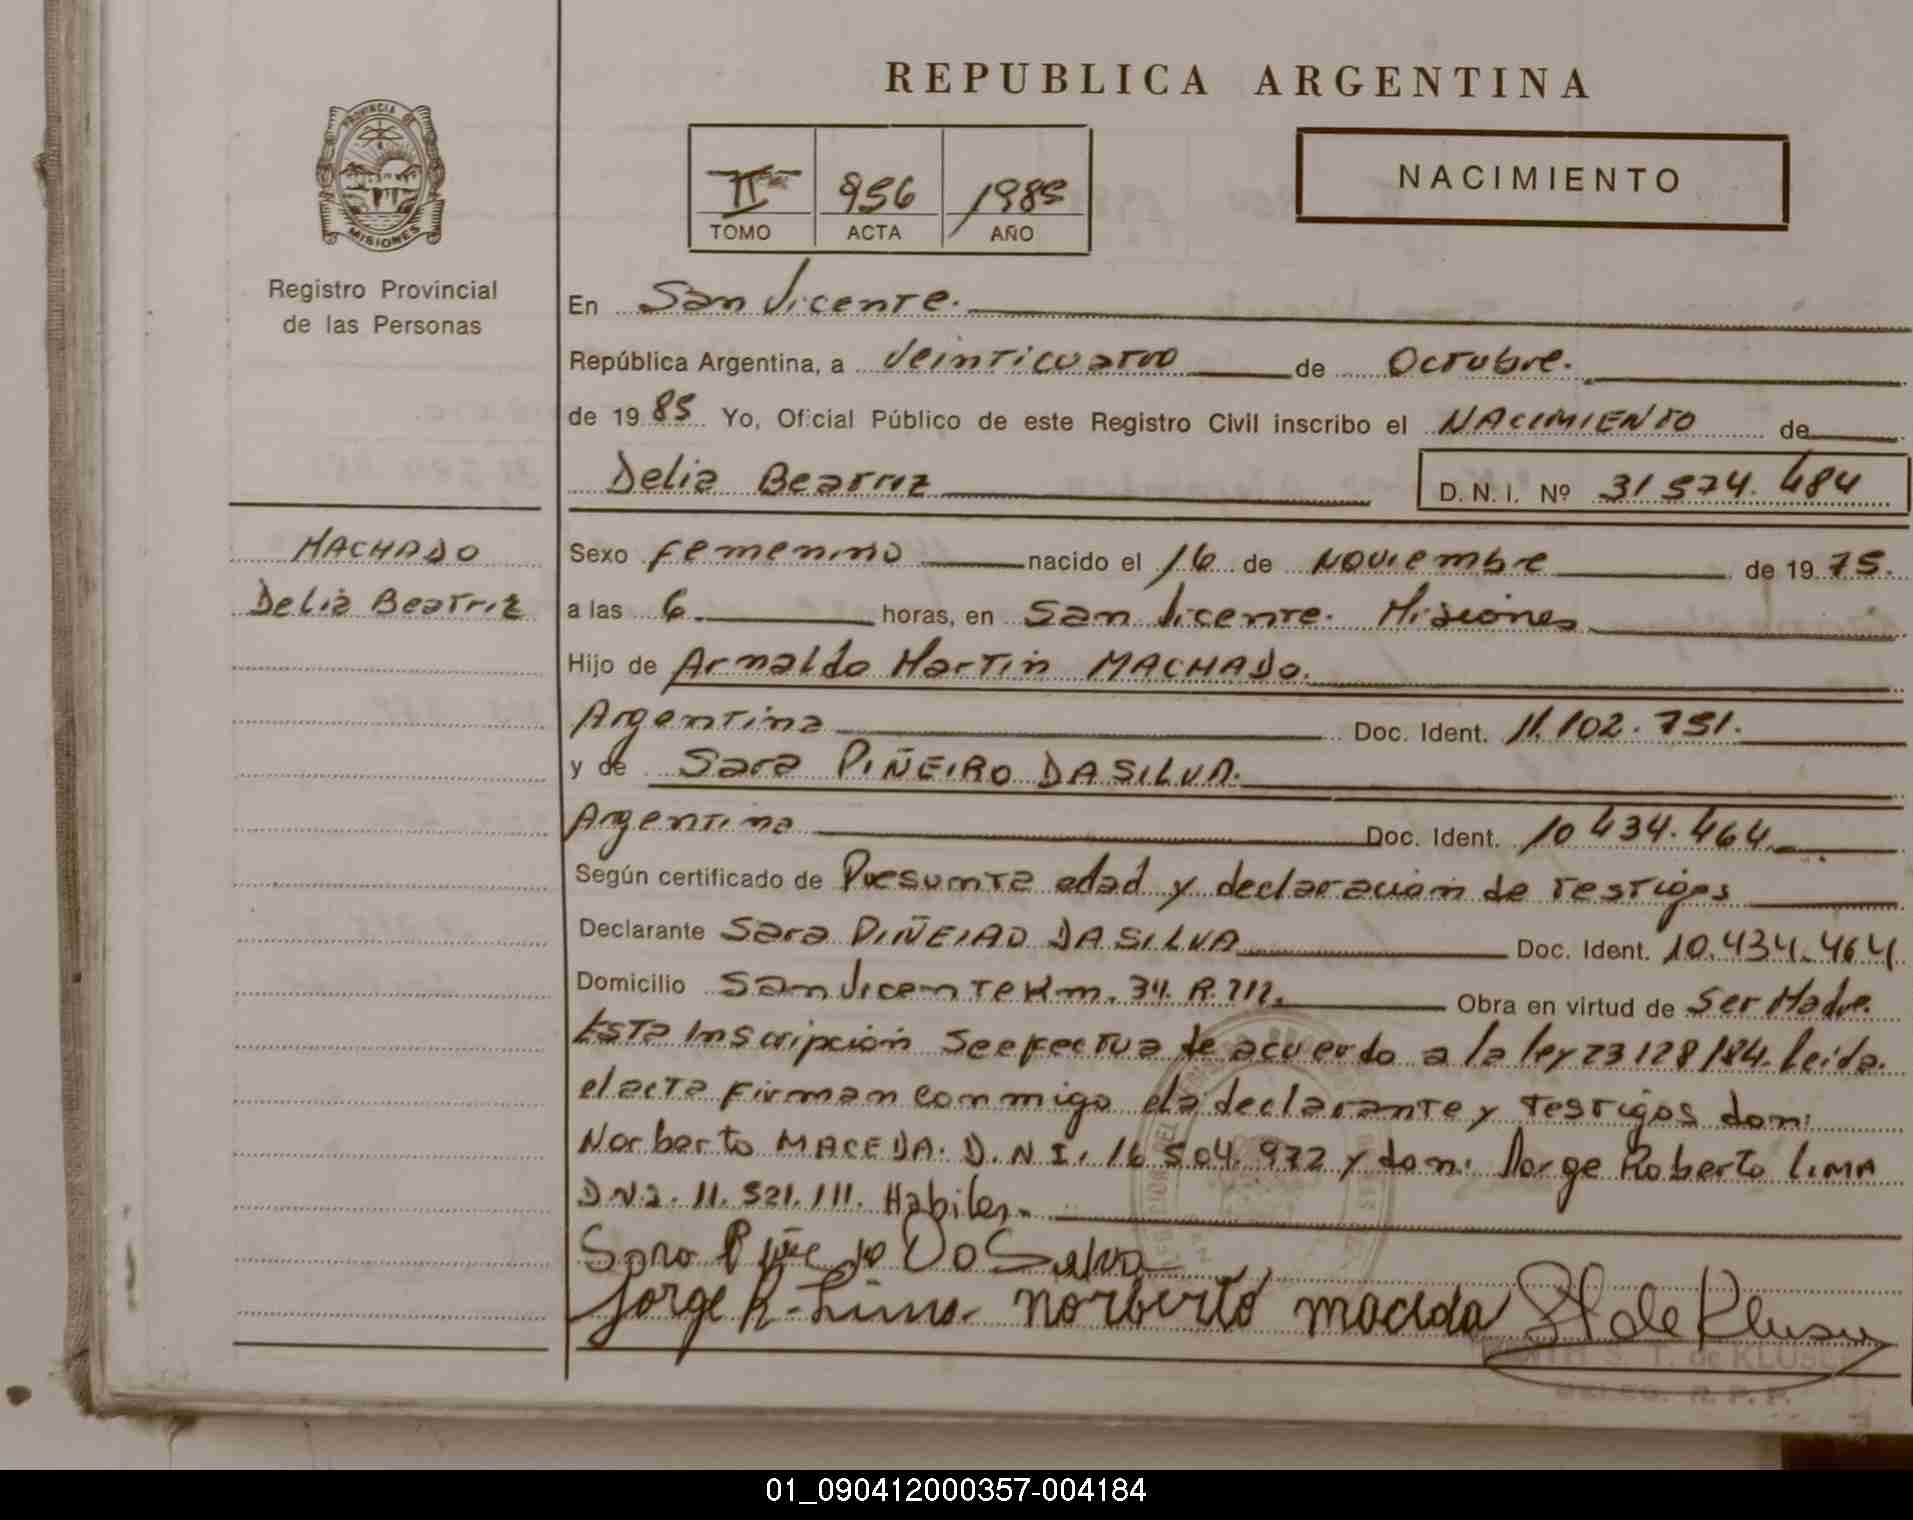 REPUBLICA ARGENTINA
PROVINCIA DE
MISIONES
Registro Provincial
de las Personas
II 956 1985
TOMO ACTA AÑO
NACIMIENTO
En San Vicente.
República Argentina, a Veinticuatro de Octubre.
de 19 85 Yo, Oficial Público de este Registro Civil inscribo el NACIMIENTO de
Delia Beatriz D. N. I. Nº 31 574. 484
MACHADO
Delia Beatriz
Sexo Femenino nacido el 16 de Noviembre de 19 75.
a las 6. horas, en San Vicente. Misiones
Hijo de Arnaldo Martin MACHADO.
Argentina Doc. Ident. 11.102.751.
y de Sara PIÑEIRO DA SILVA.
Argentina Doc. Ident. 10 434.464.
Según certificado de Presunta edad y declaración de testigos
Declarante Sara PIÑEIRO DA SILVA Doc. Ident. 10.434.464
Domicilio San Vicente Km. 34. R. 212. Obra en virtud de Ser Madre.
Esta Inscripción se efectua de acuerdo a la ley 23128/84. Leida.
el acta Firman conmigo la declarante y testigos don:
Norberto MACEDA. D.N.I. 16 504.972 y don: Jorge Roberto LIMA
D.N.I. 11.521.111. Habiles.
Sara Piñeiro Da Silva
Jorge R. Lima. Norberto maceda St de Klusu
S. T. de KLUS
R. P. P.
01_090412000357-004184